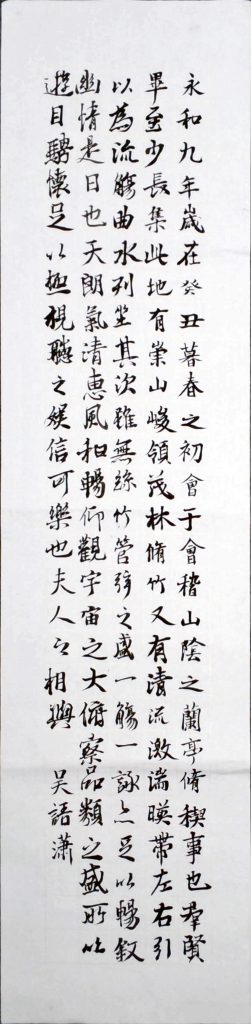 永和九年歲在癸丑暮春之初會于會稽山陰之蘭亭脩稧事也羣賢
畢至少長集此地有崇山峻領茂林脩竹又有清流激湍暎帶左右引
以為流觴曲水列坐其次雖無絲竹管弦之盛一觴一詠亦足以暢敘
幽情是日也天朗氣清惠風和暢仰觀宇宙之大俯察品類之盛所以
遊目騁懷足以極視聽之娛信可樂也夫人之相與 吳語瀟